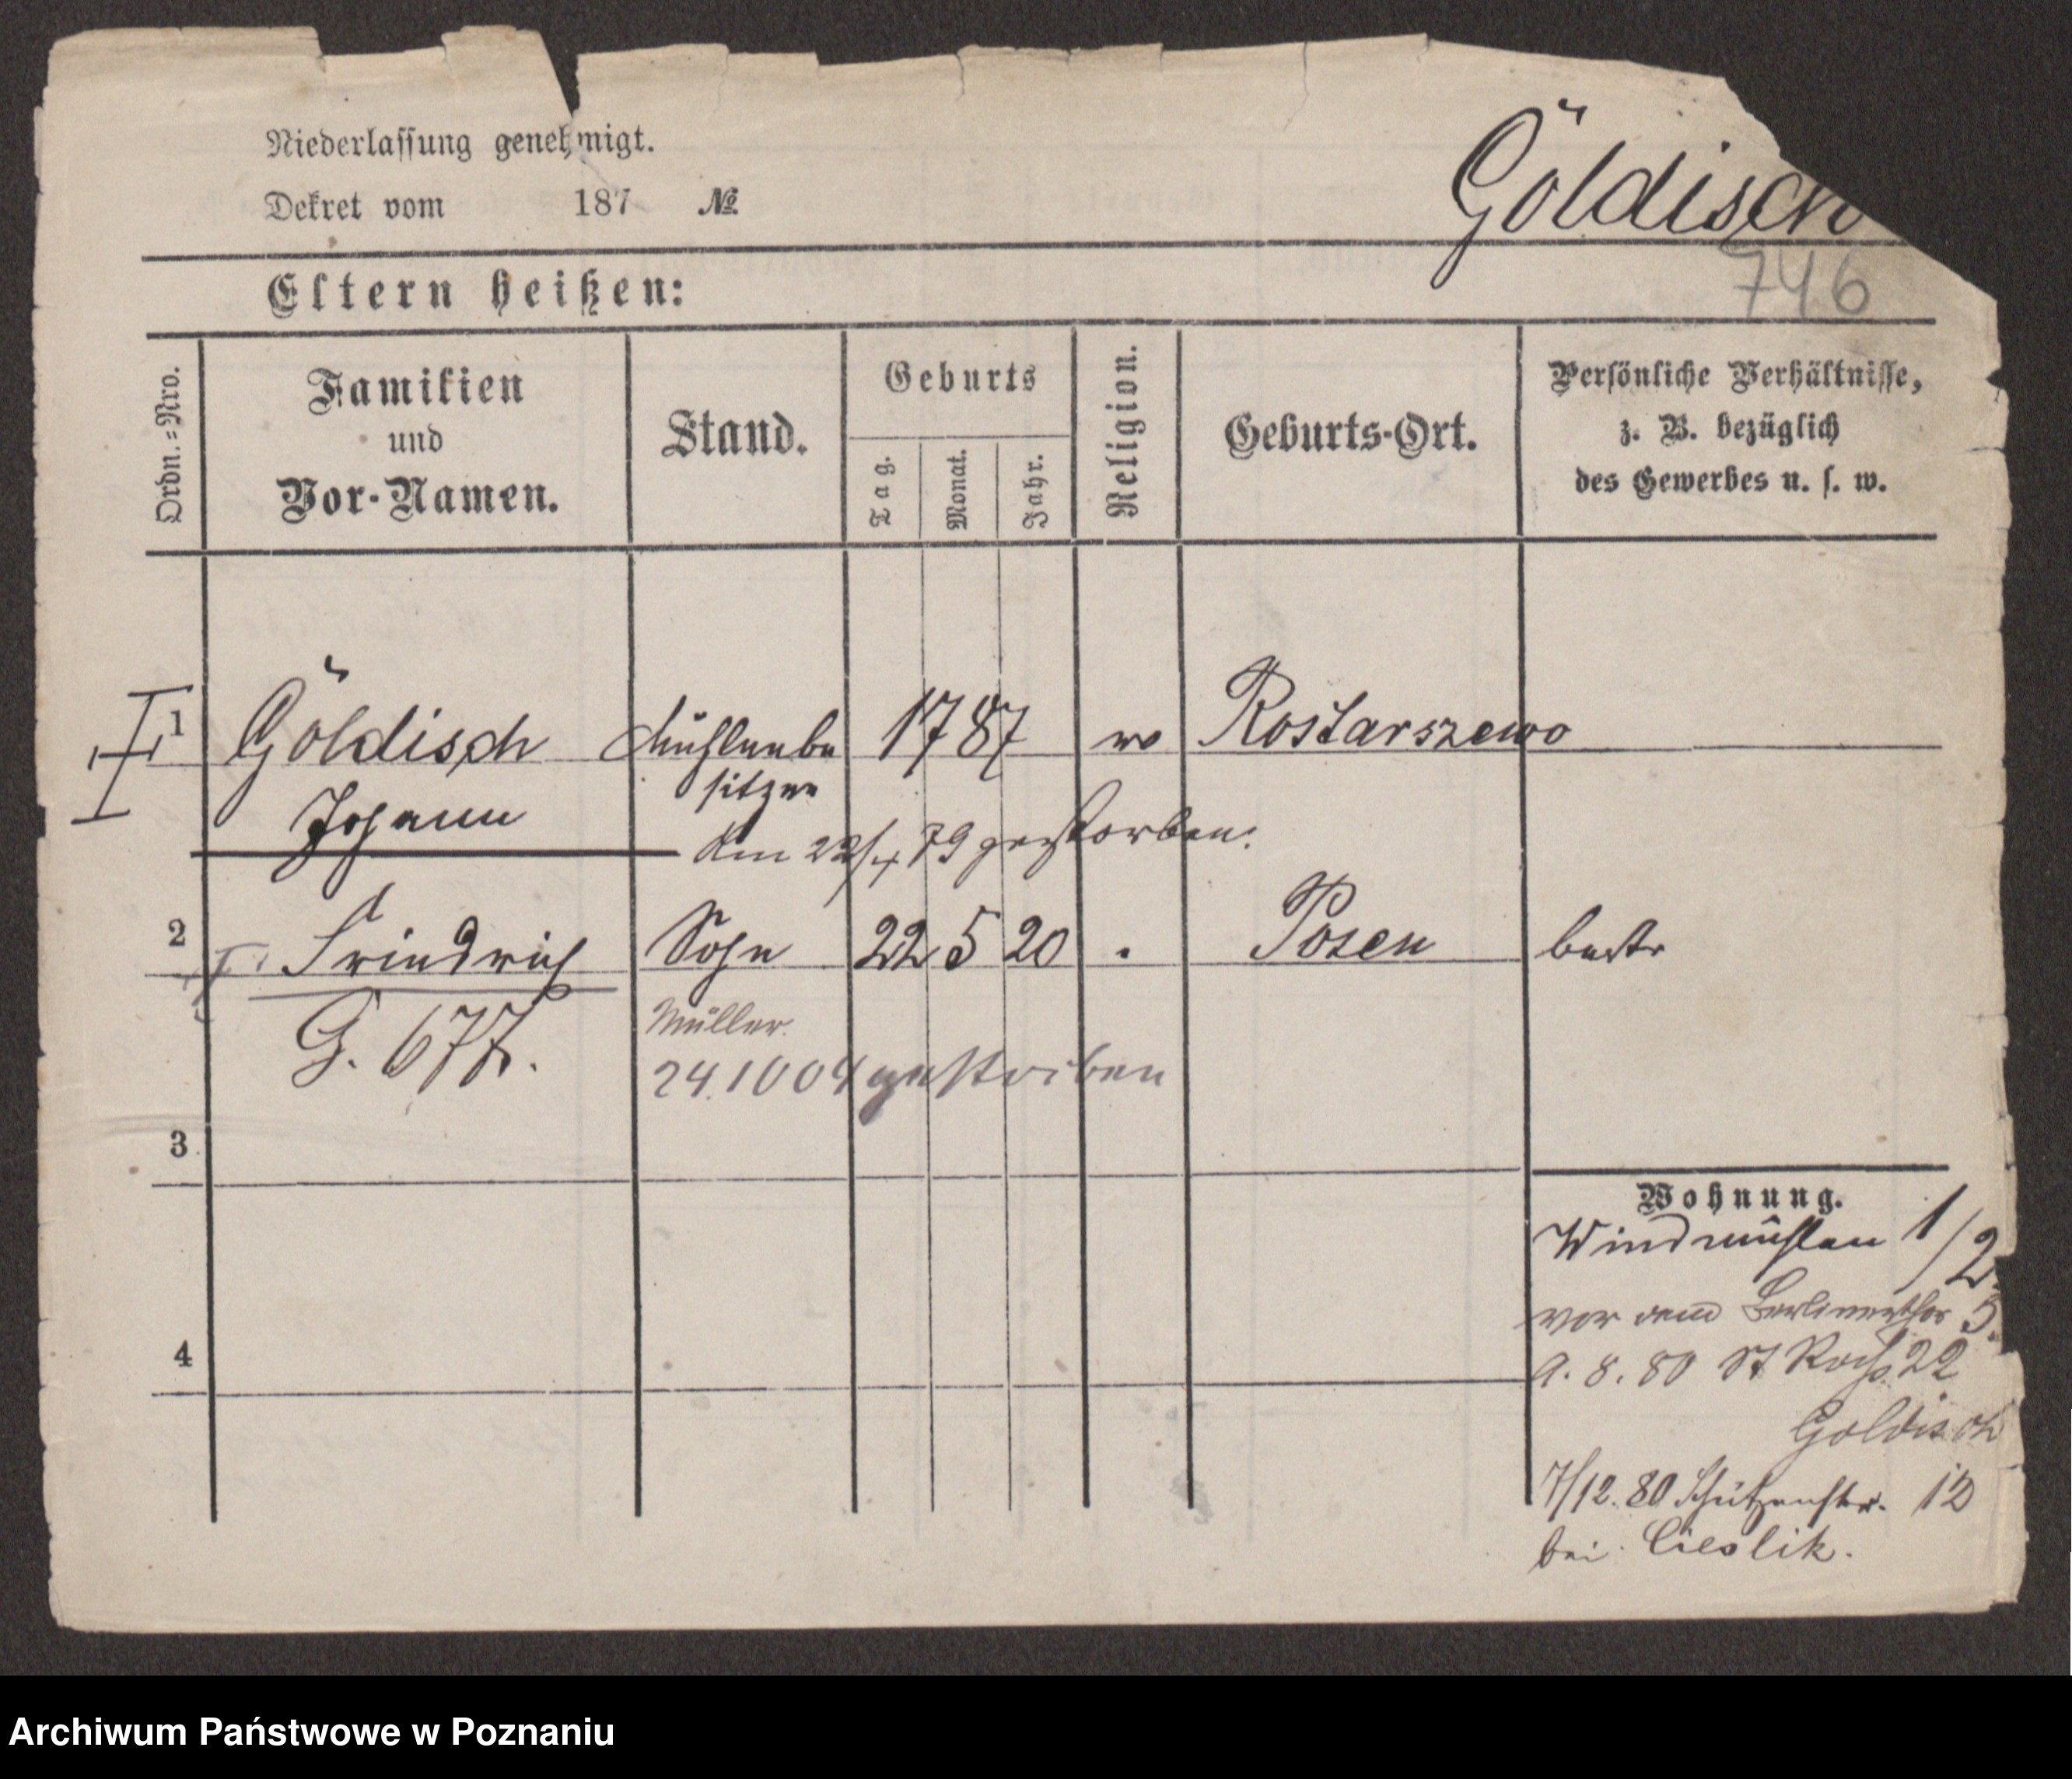 Niederlassung genehmigt.
Dekret vom 187 №
Göldisch
746
Eltern heißen:
Ordn.=Nro.
Familien
und
Vor-Namen.
Stand.
Geburts
Tag.
Monat.
Jahr.
Religion.
Geburts-Ort.
Persönliche Verhältnisse,
z. B. bezüglich
des Gewerbes u. s. w.
1 Göldisch Mühlenbe 1787 Rostarszewo
Johann sitzer
Am 22/4 79 gestorben.
2 Friedrich Sohn 22 5 20 Posen
G. 677. Müller
24.10 04 gestorben
3
Wohnung.
Windmühlen 1/2
vor dem Berlinerthor 5.
4
9. 8. 80 St Roch 22
Goldisch
7/12. 80 Schützenstr. 12
bei Cieslik.
Archiwum Państwowe w Poznaniu